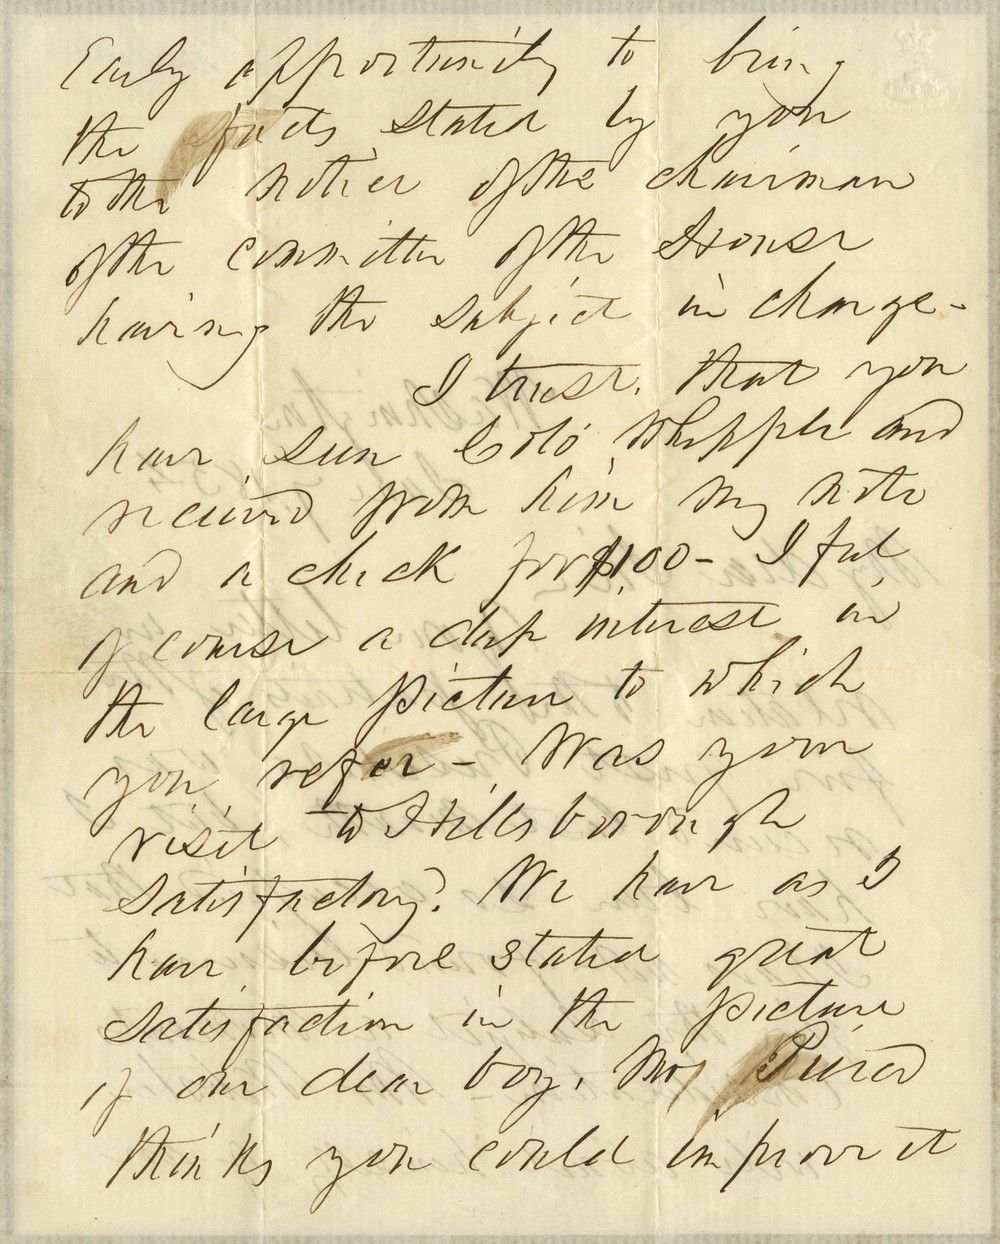 Early opportunity to bring
the facts stated by you
to the notice of the chairman
of the committee of the House
having the subject in charge-
I trust, that you
have seen Colo Whipple and
received from him my note
and a check for $100- I feel
of course a deep interest in
the large picture to which
you refer- Was your
visit to Hillsborough
satisfactory? We have as I
have before stated great
satisfaction in the picture
of our dear boy. Mrs Pierce
thinks you could improve it